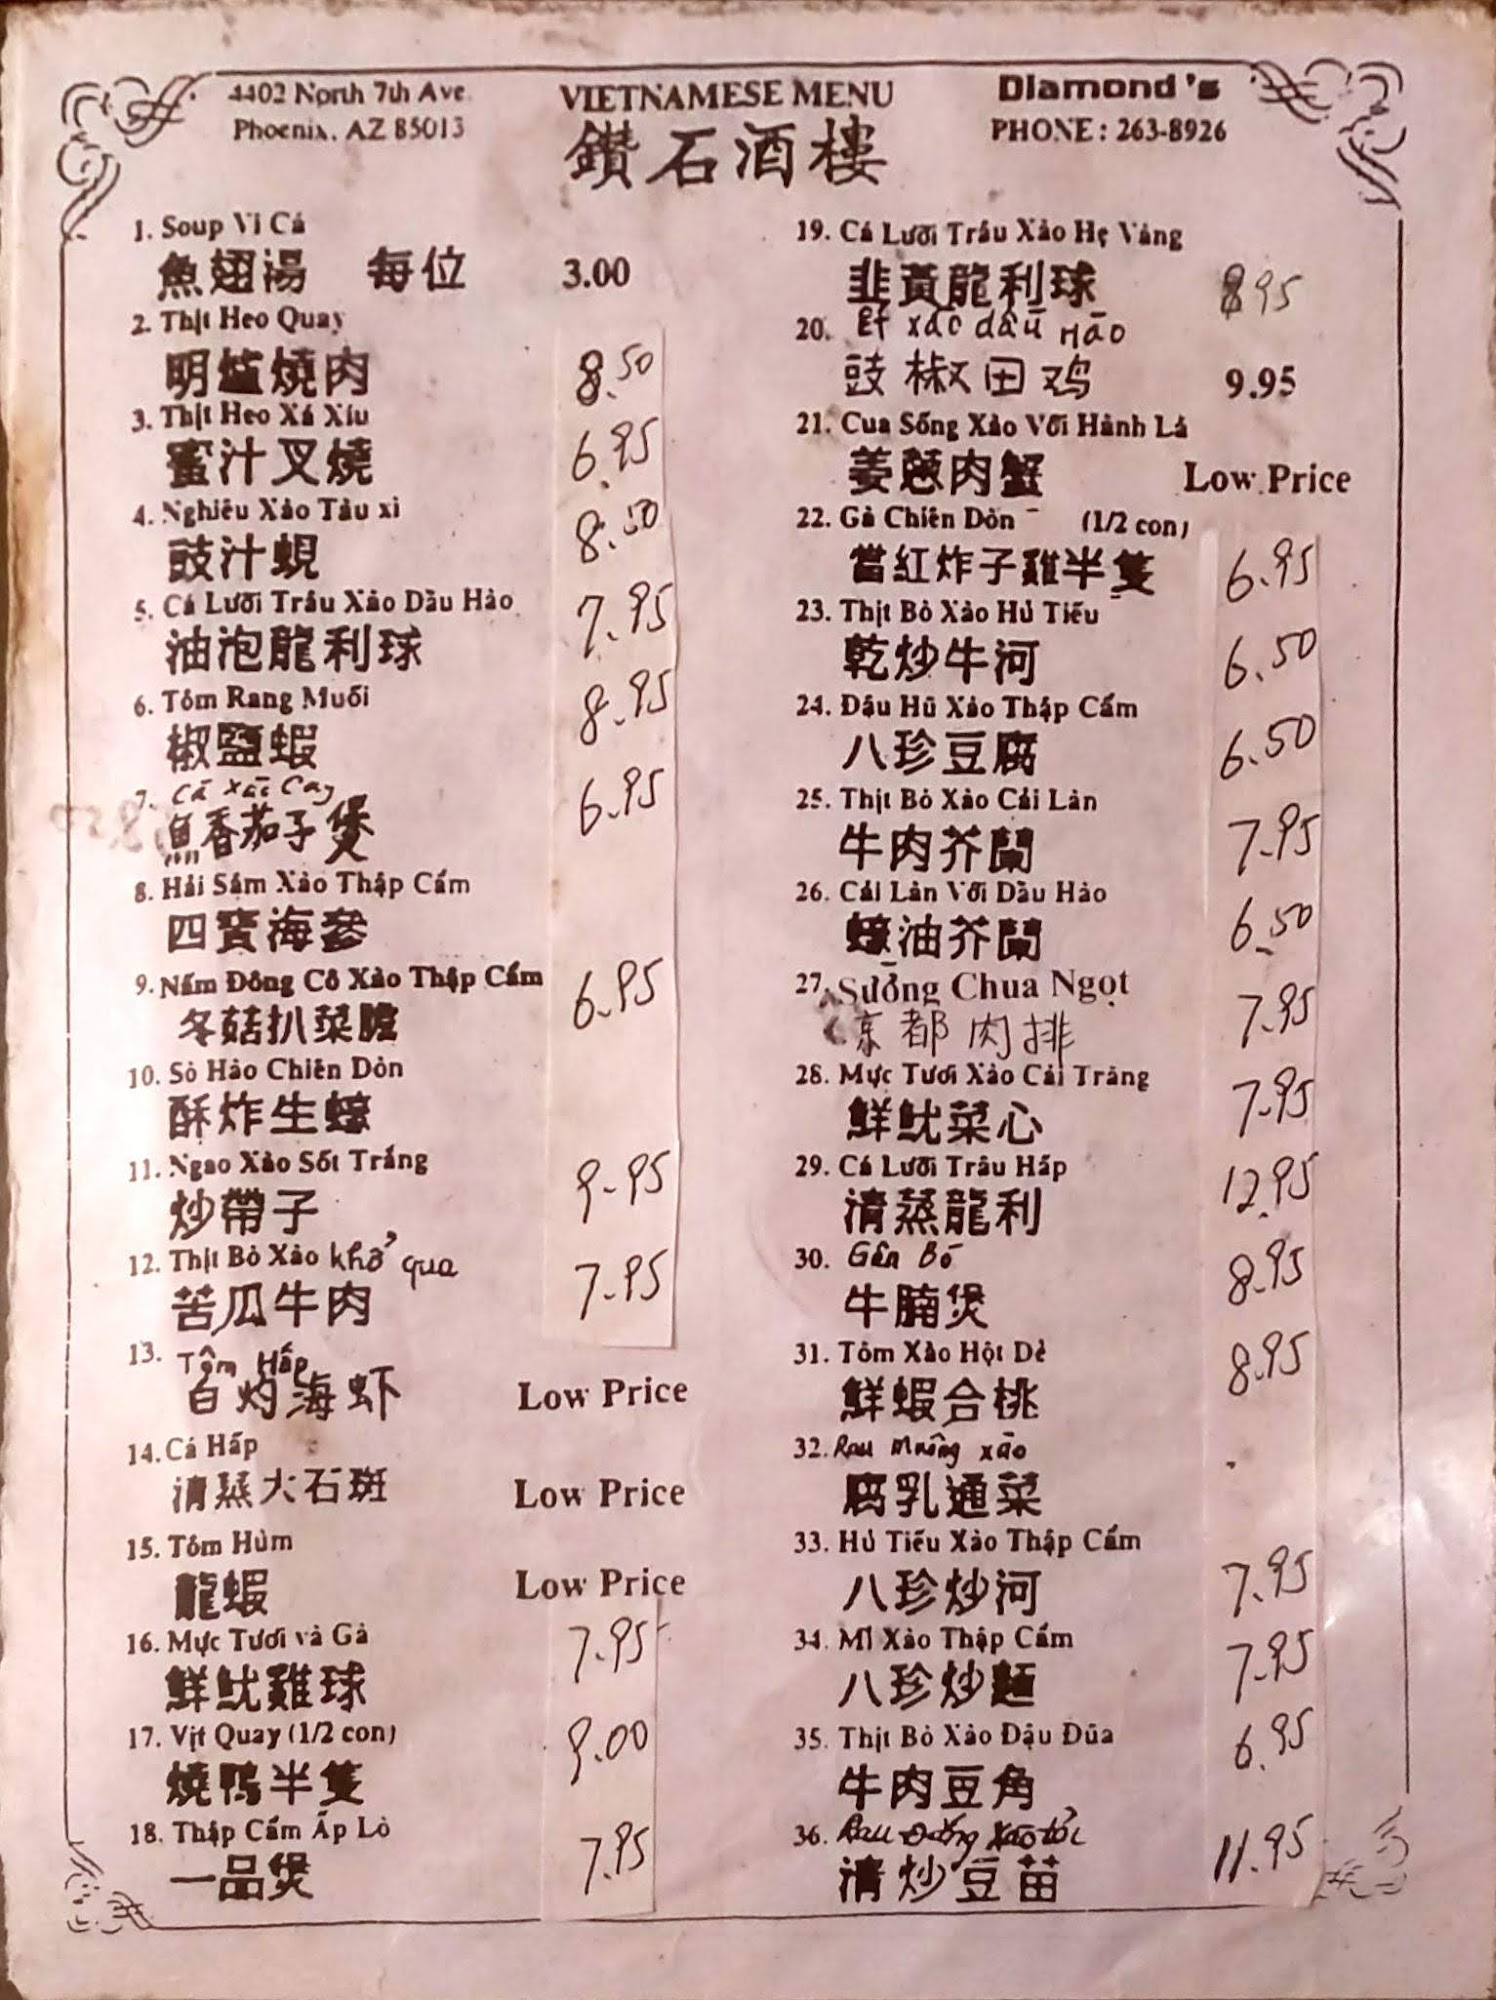 4402 North 7th Ave.
Phoenix, AZ 85013
VIETNAMESE MENU
鑽石酒樓
Diamond's
PHONE: 263-8926
1. Soup Vi Cá
魚翅湯 每位 3.00
2. Thịt Heo Quay
明爐燒肉 8.50
3. Thịt Heo Xá Xíu
蜜汁叉燒 6.95
4. Nghiêu Xào Tàu xì
豉汁蜆 8.50
5. Cá Lưỡi Trâu Xào Dầu Hào
油泡龍利球 7.95
6. Tôm Rang Muối
椒鹽蝦 8.95
7. Cà Xào Cay
魚香茄子煲 6.95
8. Hải Sâm Xào Thập Cẩm
四寶海參
9. Nấm Đông Cô Xào Thập Cẩm
冬菇扒菜膽 6.95
10. Sò Hào Chiên Dòn
酥炸生蠔
11. Ngao Xào Sốt Trắng
炒帶子 9.95
12. Thịt Bò Xào khổ qua
苦瓜牛肉 7.95
13. Tôm Hấp
白灼海虾 Low Price
14. Cá Hấp
清蒸大石斑 Low Price
15. Tôm Hùm
龍蝦 Low Price
16. Mực Tươi và Gà
鮮魷雞球 7.95
17. Vịt Quay (1/2 con)
燒鴨半隻 9.00
18. Thập Cẩm Ấp Lò
一品煲 7.95
19. Cá Lưỡi Trâu Xào Hẹ Vàng
韭黃龍利球 895
20. Ếf xào dầu Hào
豉椒田鸡 9.95
21. Cua Sống Xào Với Hành Lá
姜蔥肉蟹 Low Price
22. Gà Chiên Dòn (1/2 con)
當紅炸子雞半隻 6.95
23. Thịt Bò Xào Hủ Tiếu
乾炒牛河 6.50
24. Đậu Hũ Xào Thập Cẩm
八珍豆腐 6.50
25. Thịt Bò Xào Cải Làn
牛肉芥蘭 7.95
26. Cải Làn Với Dầu Hào
蠔油芥蘭 6.50
27. Sường Chua Ngọt
京都肉排 7.95
28. Mực Tươi Xào Cải Trắng
鮮魷菜心 7.95
29. Cá Lưỡi Trâu Hấp
清蒸龍利 12.95
30. Gân Bò
牛腩煲 8.95
31. Tôm Xào Hột Dẻ
鮮蝦合桃 8.95
32. Rau Muống xào
腐乳通菜
33. Hủ Tiếu Xào Thập Cẩm
八珍炒河 7.95
34. Mì Xào Thập Cẩm
八珍炒麵 7.95
35. Thịt Bò Xào Đậu Đũa
牛肉豆角 6.95
36. Rau Đắng Xào tỏi
清炒豆苗 11.95